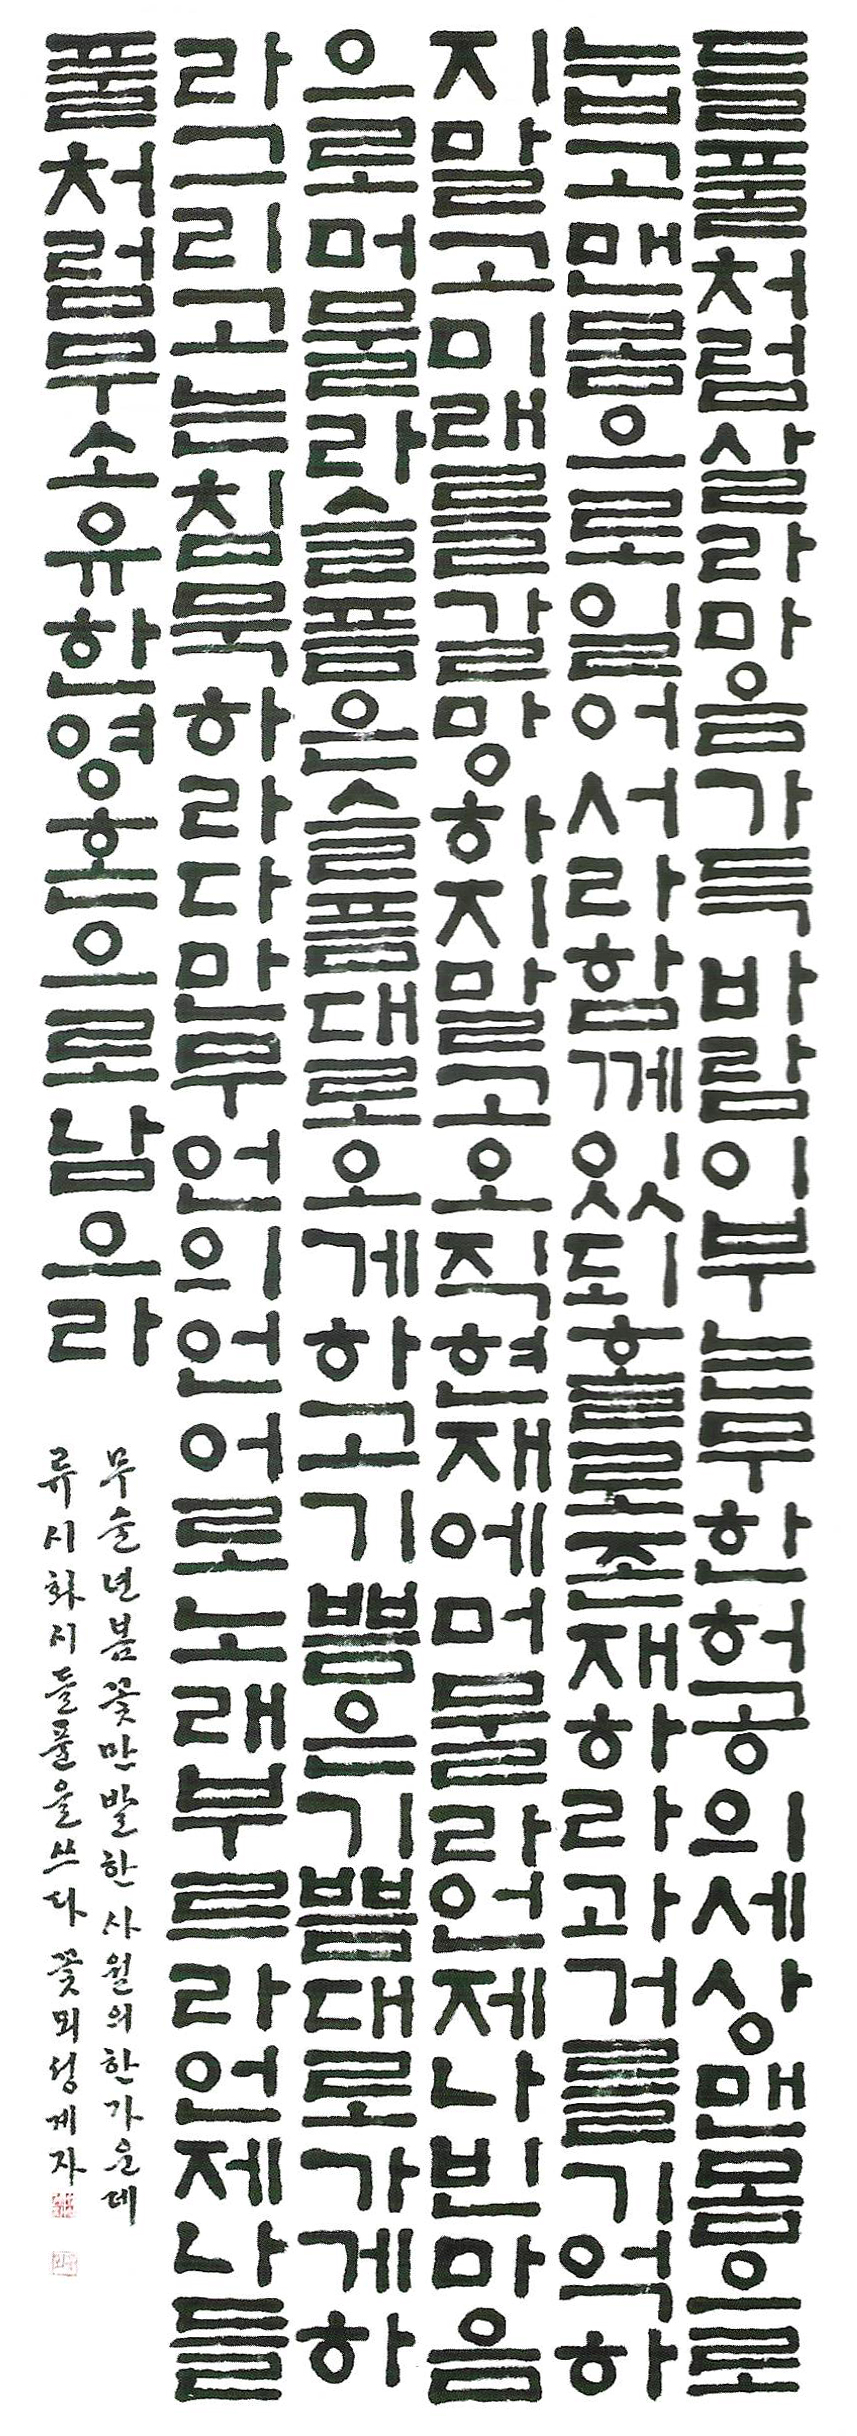 들풀처럼살라마음가득바람이부는무한허공의세상맨몸으로
눕고맨몸으로일어서라함께있되홀로존재하라과거를기억하
지말고미래를갈망하지말고오직현재에머물라언제나빈마음
으로머물라슬픔은슬픔대로오게하고기쁨은기쁨대로가게하
라그리고는침묵하라다만무언의언어로노래부르라언제나들
풀처럼무소유한영혼으로남으라
무술년봄꽃만발한사월의한가운데
류시화시들풀을쓰다꽃뫼성계자